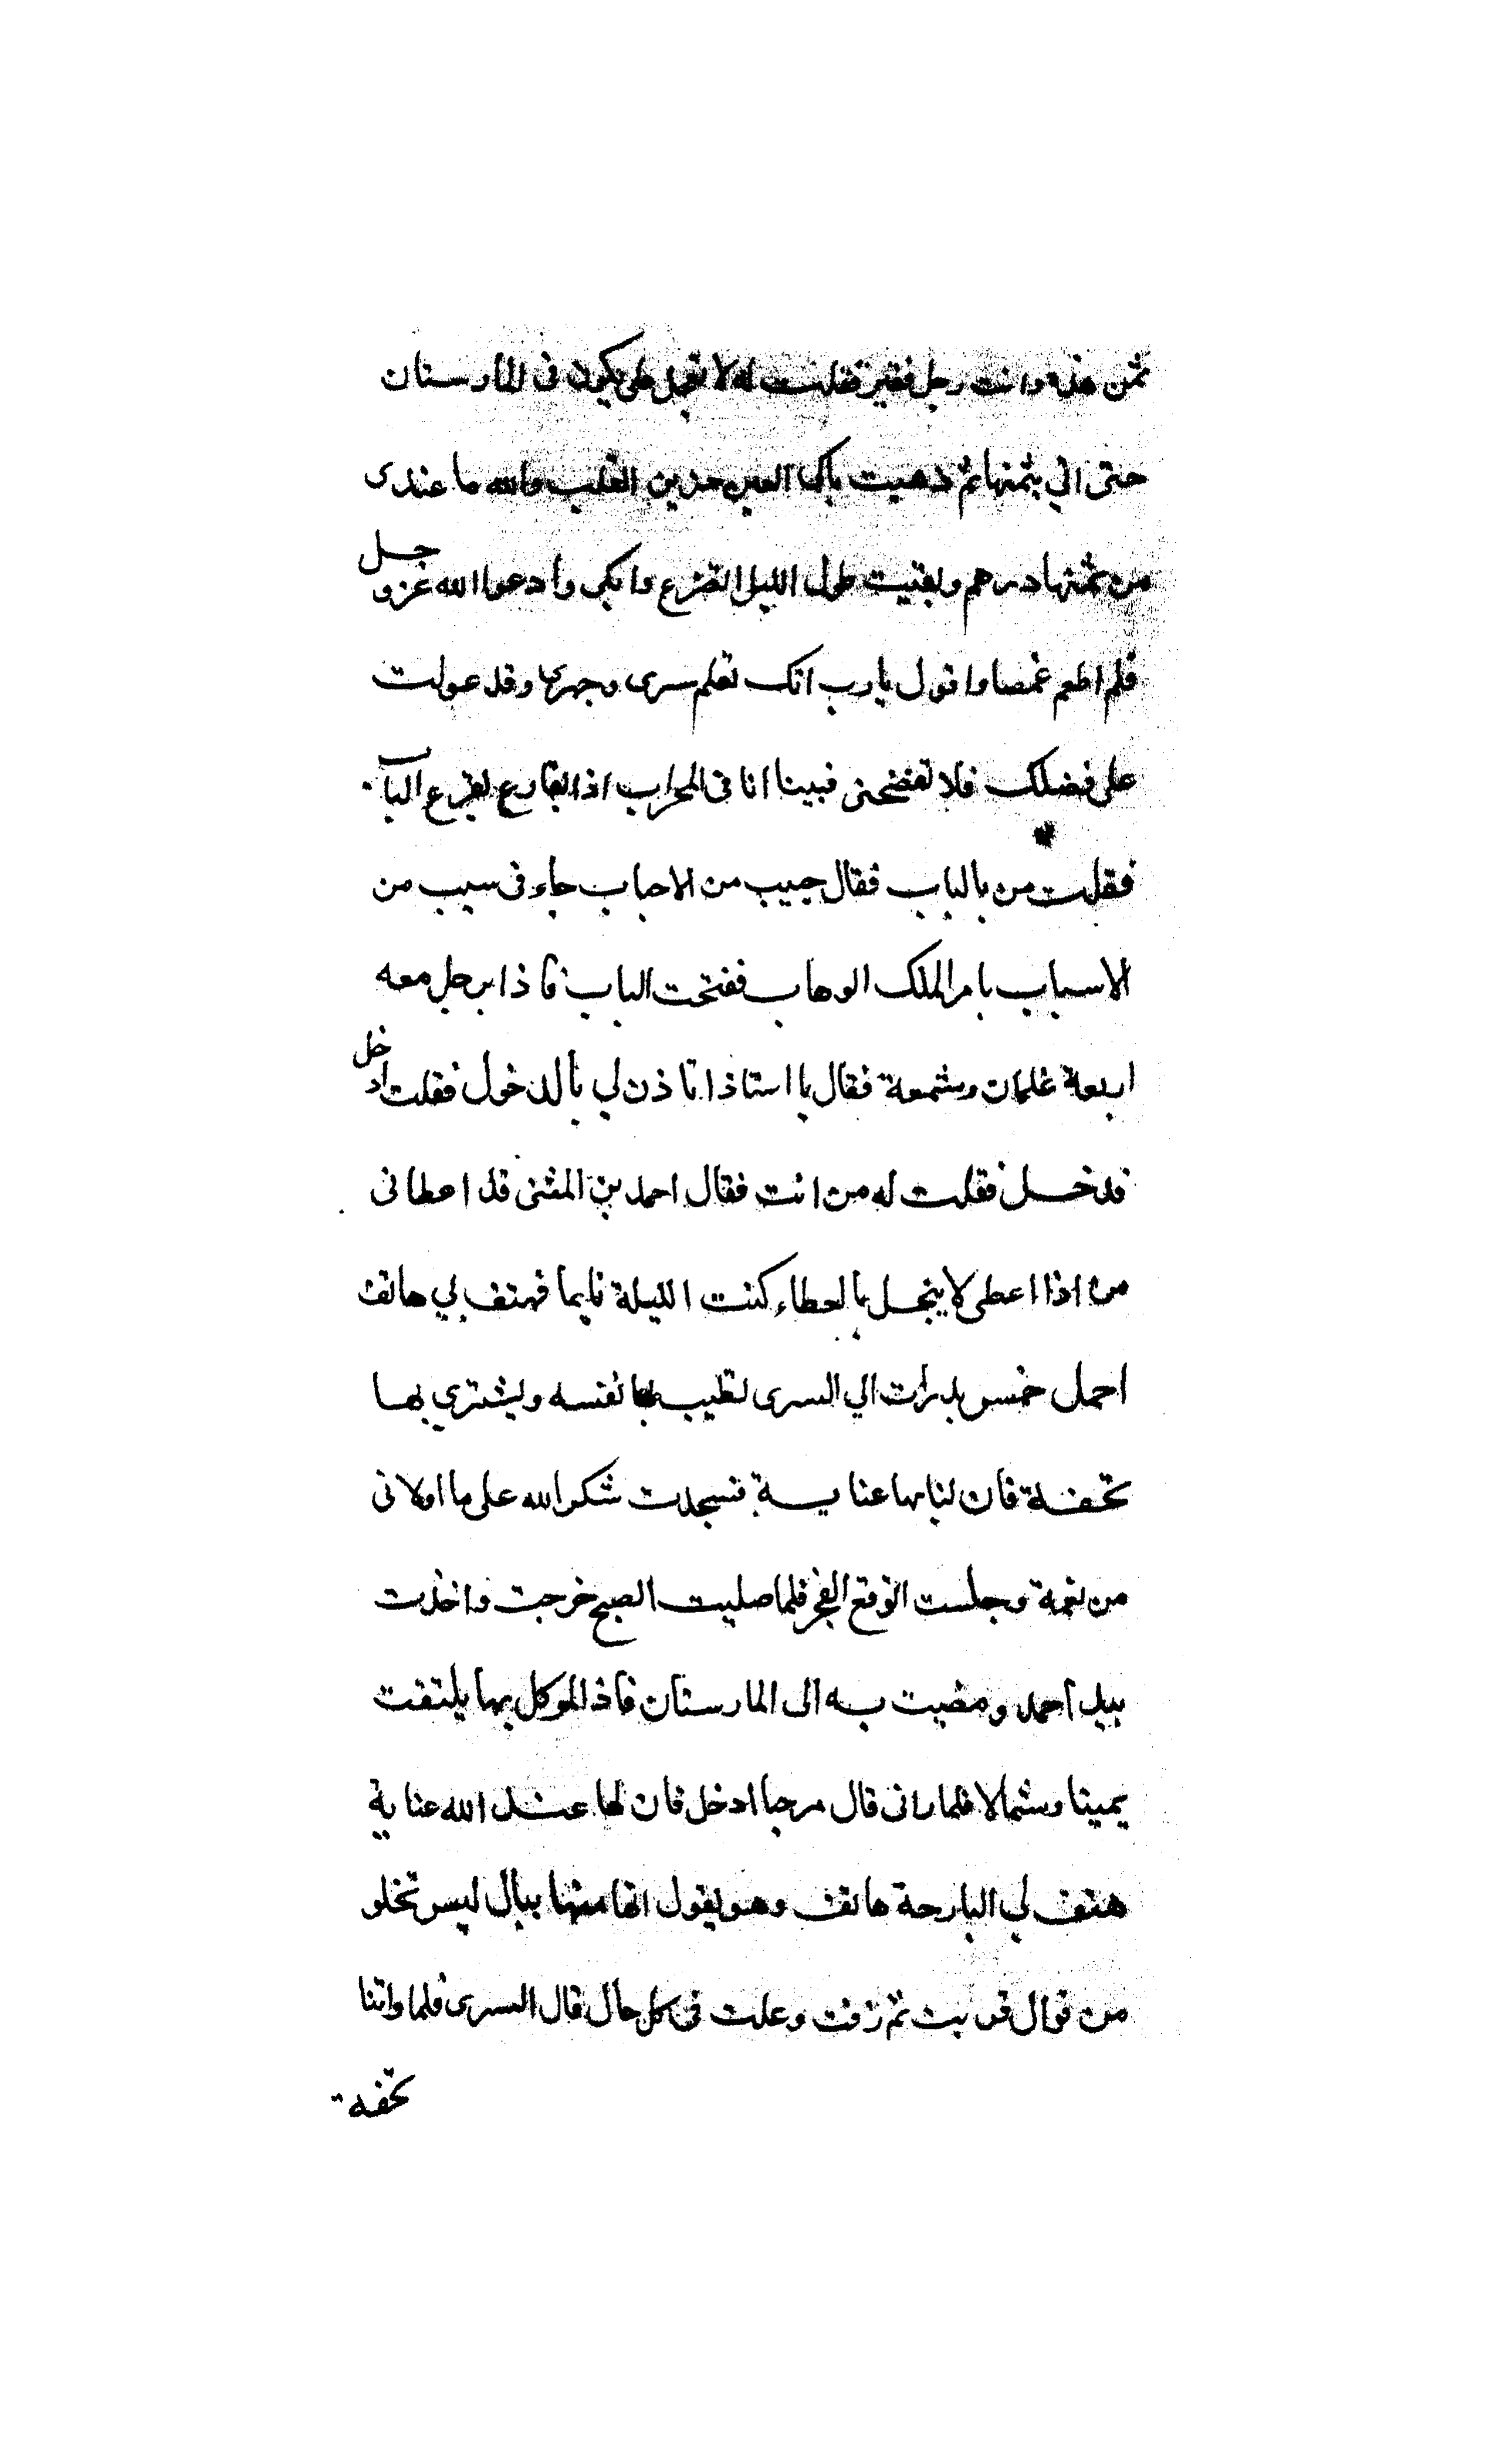 ثمن هذه وانت رجل فقير فقلت له لا تعجل على يكون في المارستان
حتى اتي بثمنها ثم ذهبت باكى العين حزين القلب والله ما عندى
من ثمنها درهم وبقيت طول الليل اتضرع وابكى وادعوا الله عز و جل
فلم اطعم غمضا واقول يا رب انك تعلم سرى وجهرى وقد عولت
على فضلك فلا تفضحنى فبينا انا فى المحراب اذا بقارع يقرع الباب
فقلت من بالباب فقال حبيب من الاحباب جاء فى سبب من
الاسباب بامر الملك الوهاب ففتحت الباب فاذا برجل معه
اربعة غلمان وشمعة فقال يا استاذ اتاذن لي بالدخول فقلت ادخل
فدخل فقلت له من انت فقال احمد بن المثنى قد اعطانى
من اذا اعطى لا يبخل بالعطاء كنت الليلة نايما فهتف بي هاتف
احمل خمس بدرات الي السرى تطيب بها نفسه ويشتري بها
تحفة فان لنا بها عناية فسجدت شكرا لله على ما اولانى
من نعمة وجلست اتوقع الفجر فلما صليت الصبح خرجت واخذت
بيد احمد ومضيت به الى المارستان فاذ الموكل بها يلتفت
يمينا وشمالا فلما رانى قال مرحبا ادخل فان لها عند الله عناية
هتف لي البارحة هاتف وهو يقول انها منها ببال ليس تخلو
من نوال قربت ثم زفت وعلت فى كل حال قال السرى فلما واتنا
تحفة